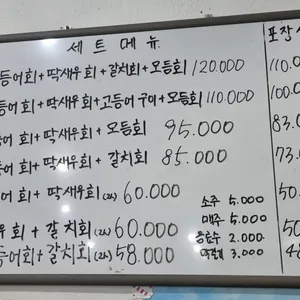 세트메뉴
포장
등어회+딱새우회+갈치회+모듬회 120.000
등어회+딱새우회+고등어구이+모듬회 110.000
어회+딱새우회+모듬회 95.000
어회+딱새우회+갈치회 85.000
어회+딱새우회(2人) 60.000
우회+갈치회(2人) 60.000
등어회+갈치회(2人) 58.000
소주 5.000
맥주 5.000
음료수 2.000
막걸리 3.000
110.0
100.0
83.0
73.0
50.
50
48